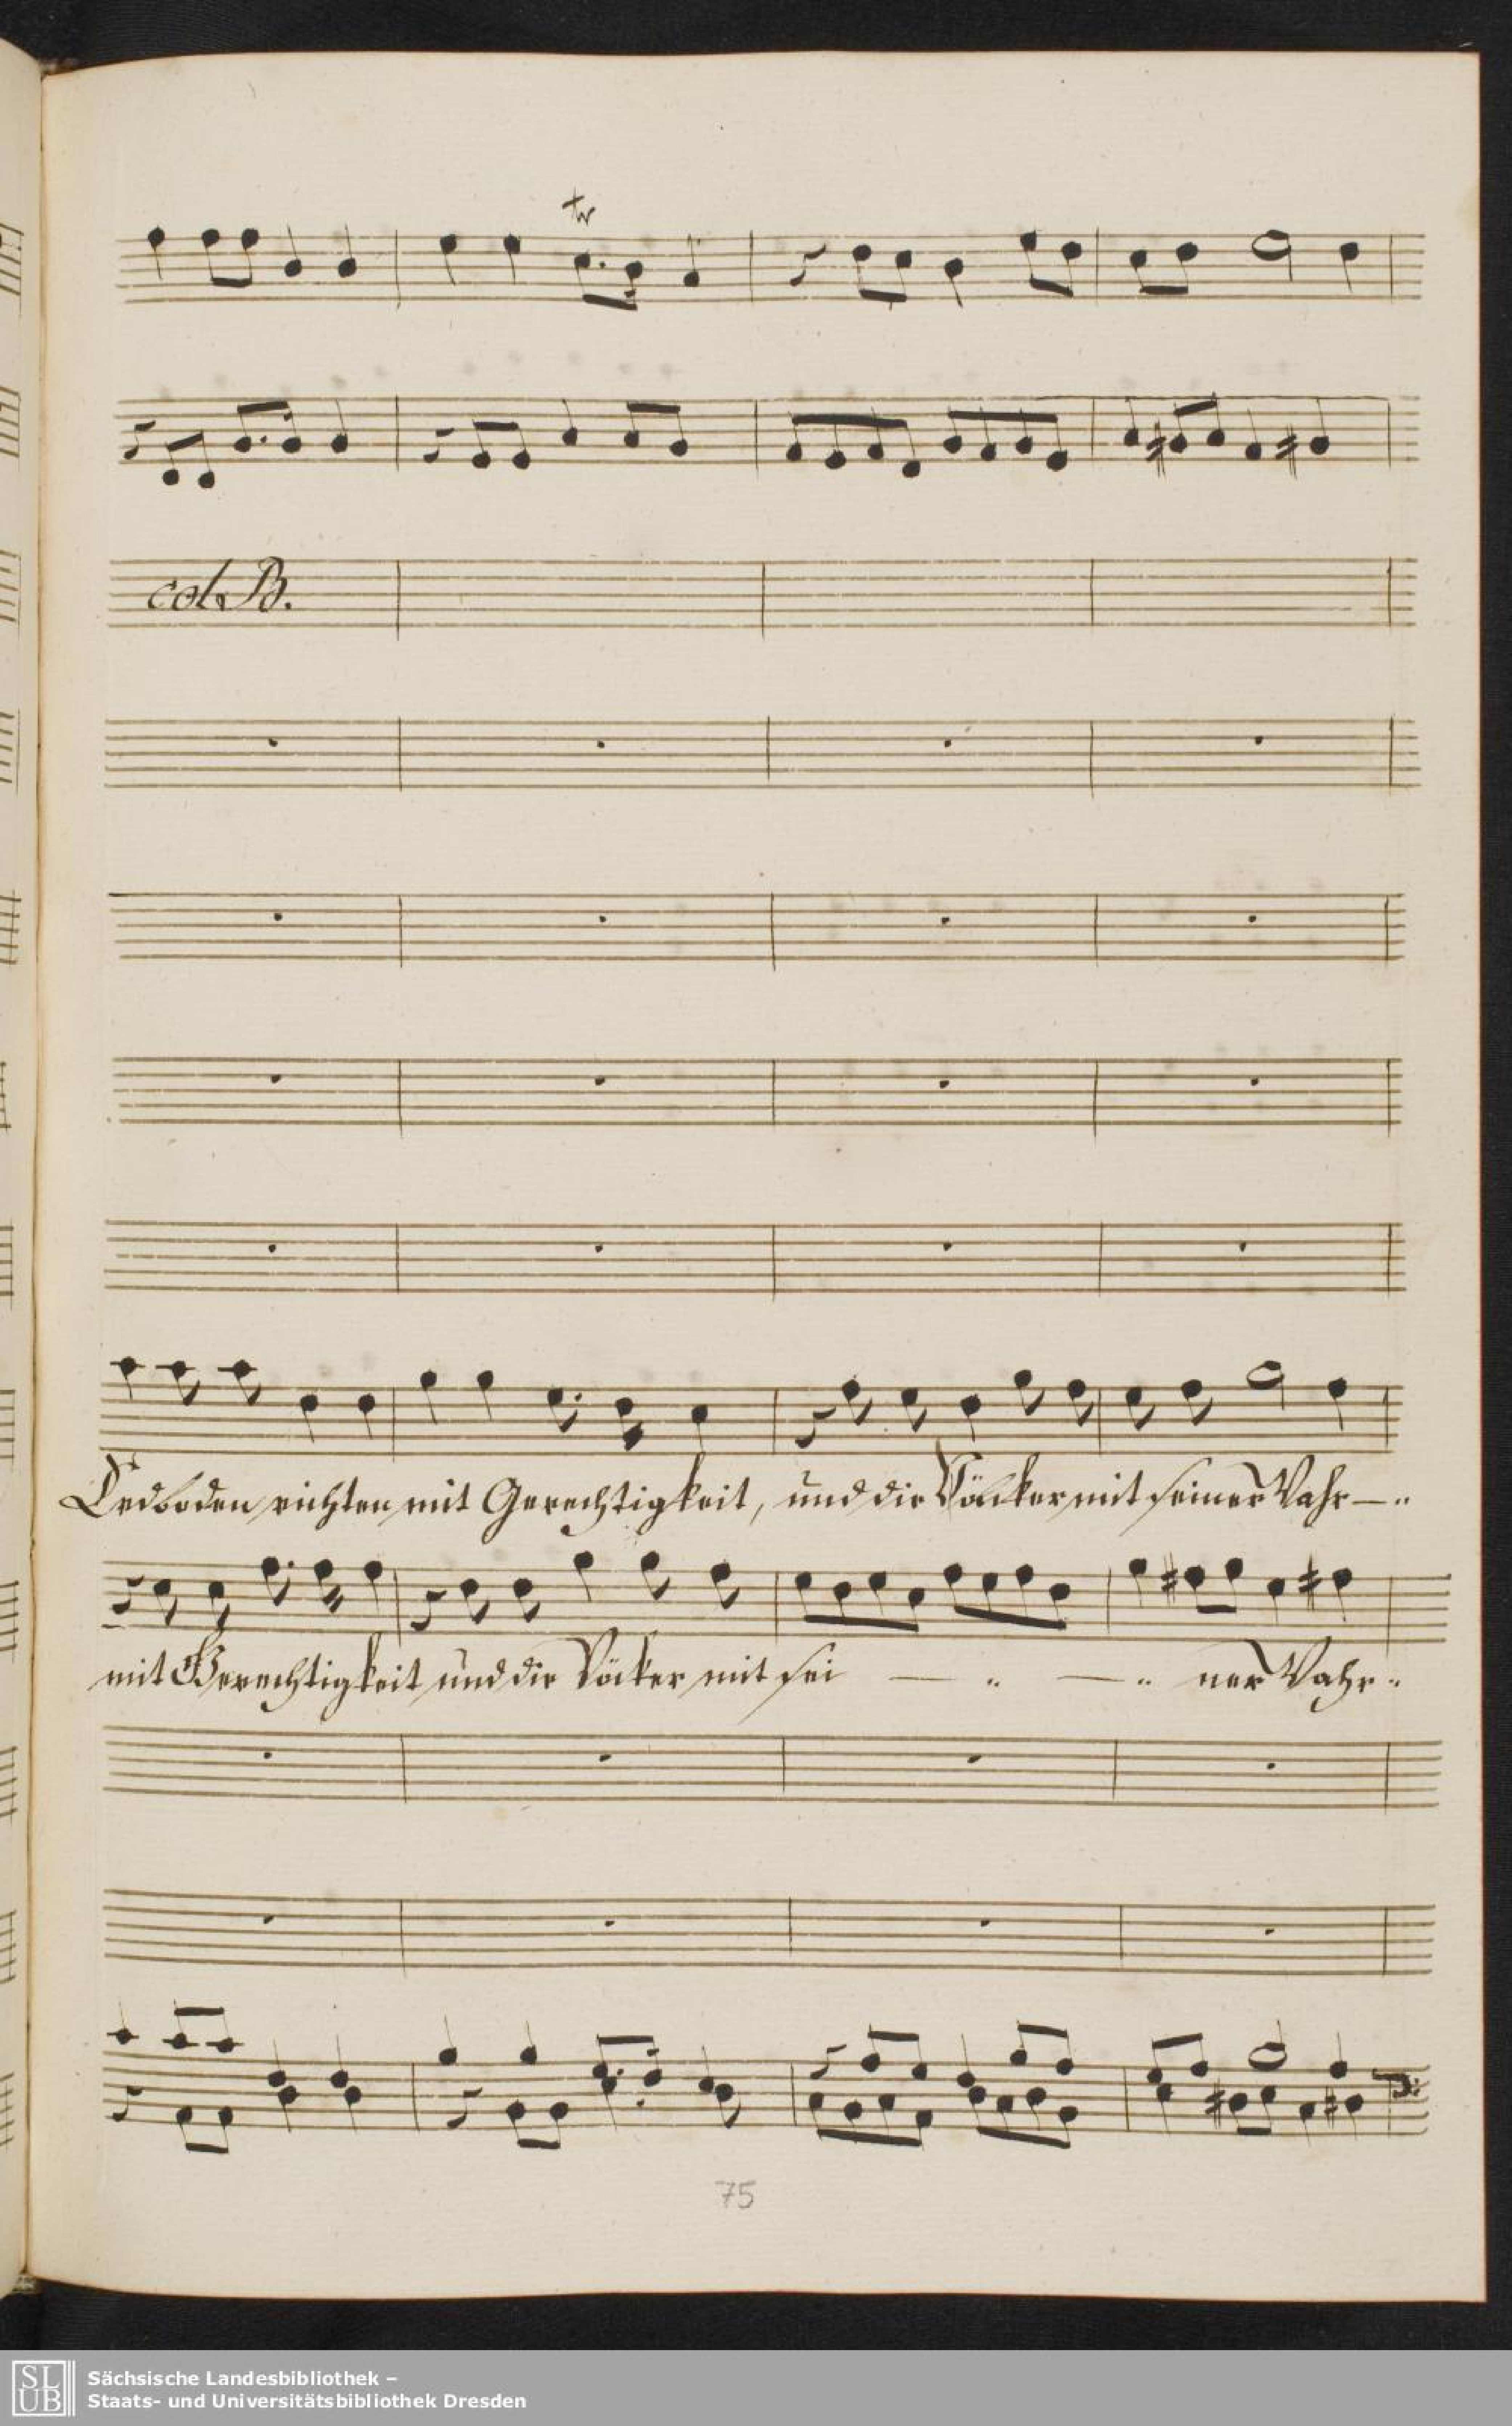 tr
col B.
Erdboden richten mit Gerechtigkeit, und die Völcker mit seiner Wahr-
mit Gerechtigkeit und die Völcker mit sei - - ner Wahr-
75
SL
UB
Sächsische Landesbibliothek –
Staats- und Universitätsbibliothek Dresden